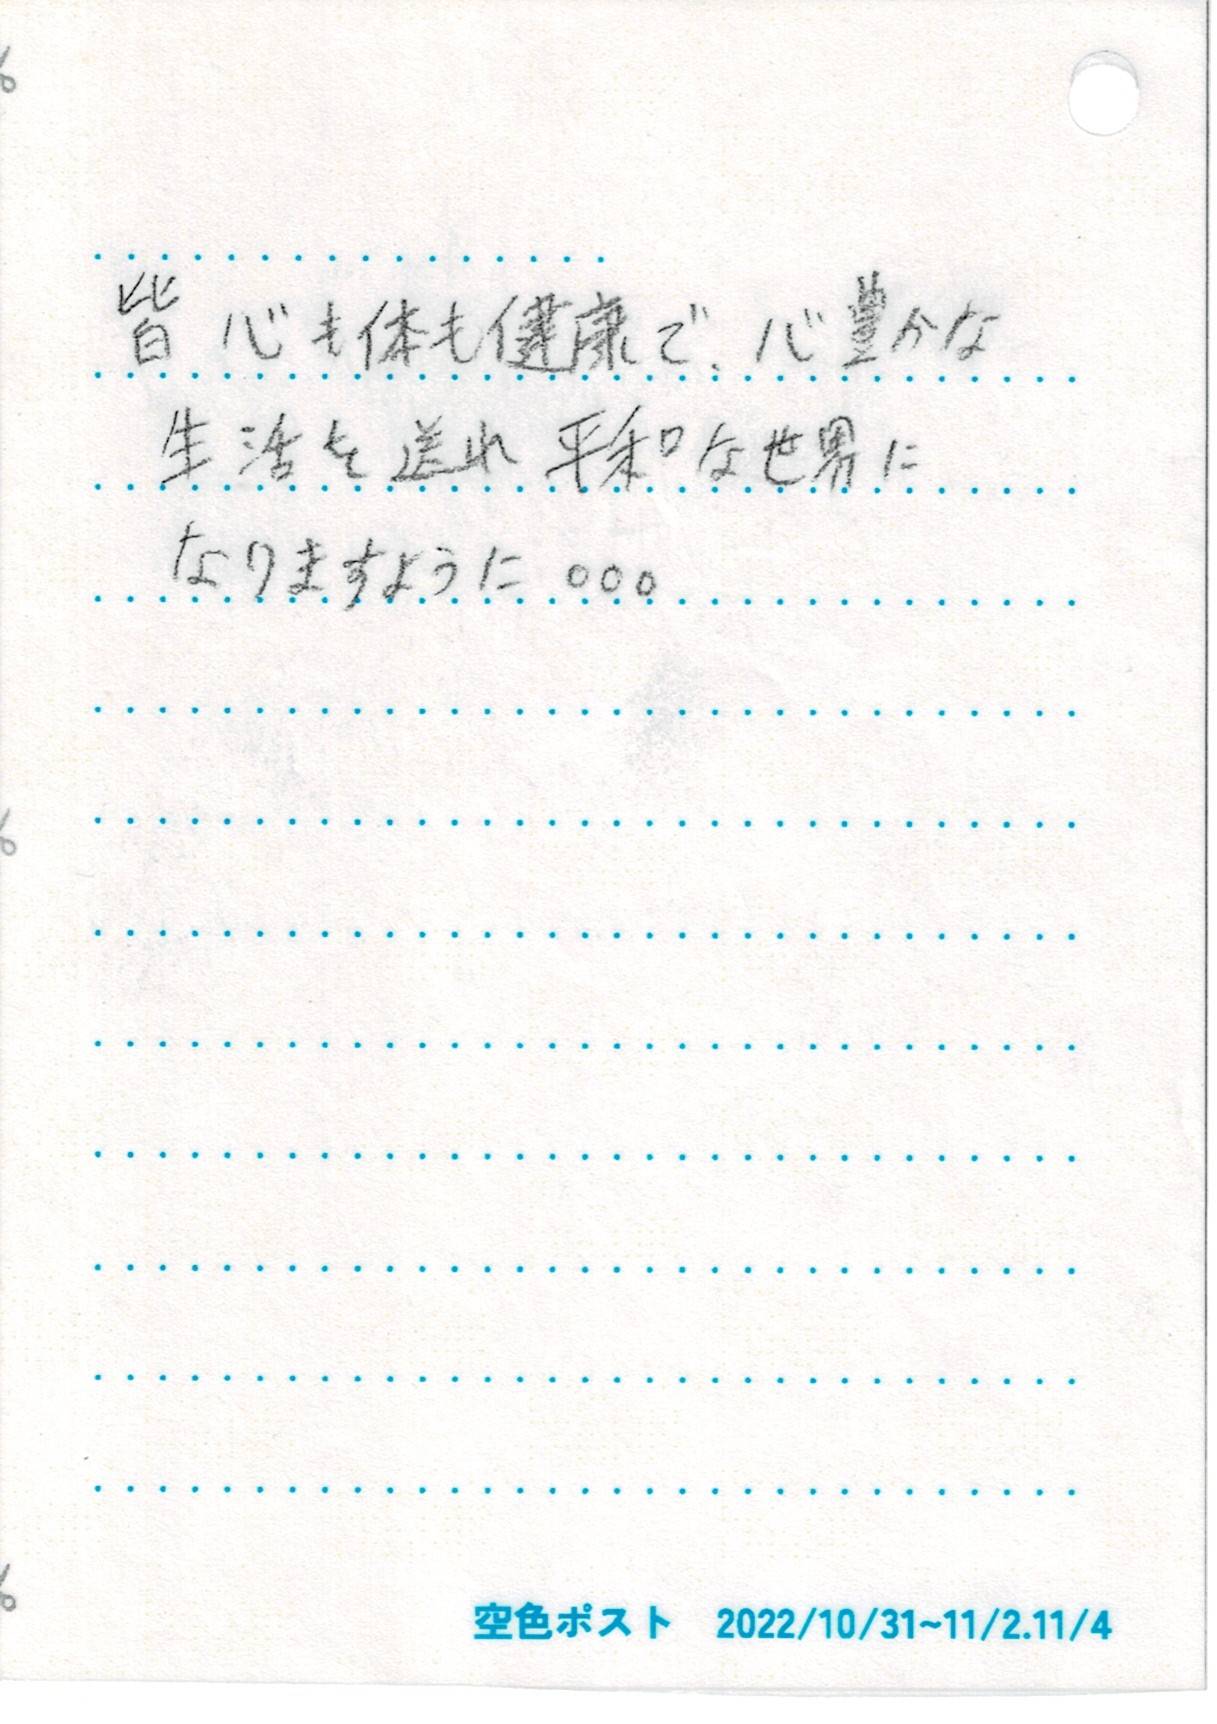 皆 心も体も健康で、心豊かな
生活を送れ 平和な世界に
なりますように 。。。
空色ポスト 2022/10/31~11/2.11/4